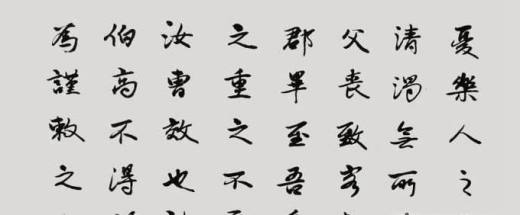 憂樂人之
清濁無所
父喪致客
郡畢至吾
之重之不
汝曹效也
伯高不得
為謹敕之